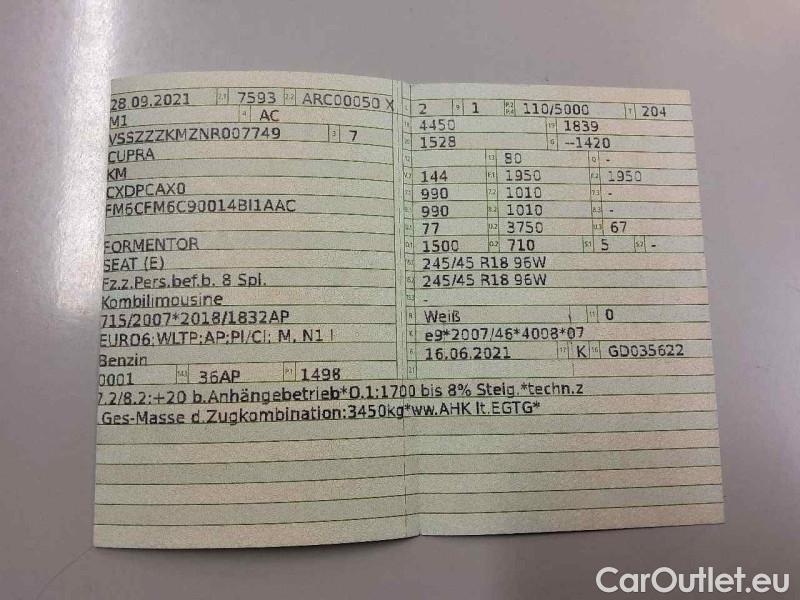 28.09.2021 2.1 7593 2.2 ARC00050 X
M1 4 AC
VSSZZZKMZNR007749 3 7
CUPRA
KM
CXDPCAX0
FM6CFM6C90014BI1AAC
FORMENTOR
SEAT (E)
Fz.z.Pers.bef.b. 8 Spl.
Kombilimousine
715/2007*2018/1832AP
EURO6;WLTP;AP;PI/CI; M, N1 I
Benzin
0001 14.1 36AP P.1 1498
L 2 9 1 P.2 P.4 110/5000 T 204
18 4450 19 1839
20 1528 G --1420
12 13 80 Q -
V.7 144 F.1 1950 F.2 1950
7.1 990 7.2 1010 7.3 -
8.1 990 8.2 1010 8.3 -
U.1 77 U.2 3750 U.3 67
O.1 1500 O.2 710 S.1 5 S.2 -
15.1 245/45 R18 96W
15.2 245/45 R18 96W
15.3 -
R Weiß 11 0
K e9*2007/46*4008*07
6 16.06.2021 17 K 16 GD035622
21
7.2/8.2:+20 b.Anhängebetrieb*O.1:1700 bis 8% Steig.*techn.z
.Ges-Masse d.Zugkombination:3450kg*ww.AHK lt.EGTG*
CarOutlet.eu